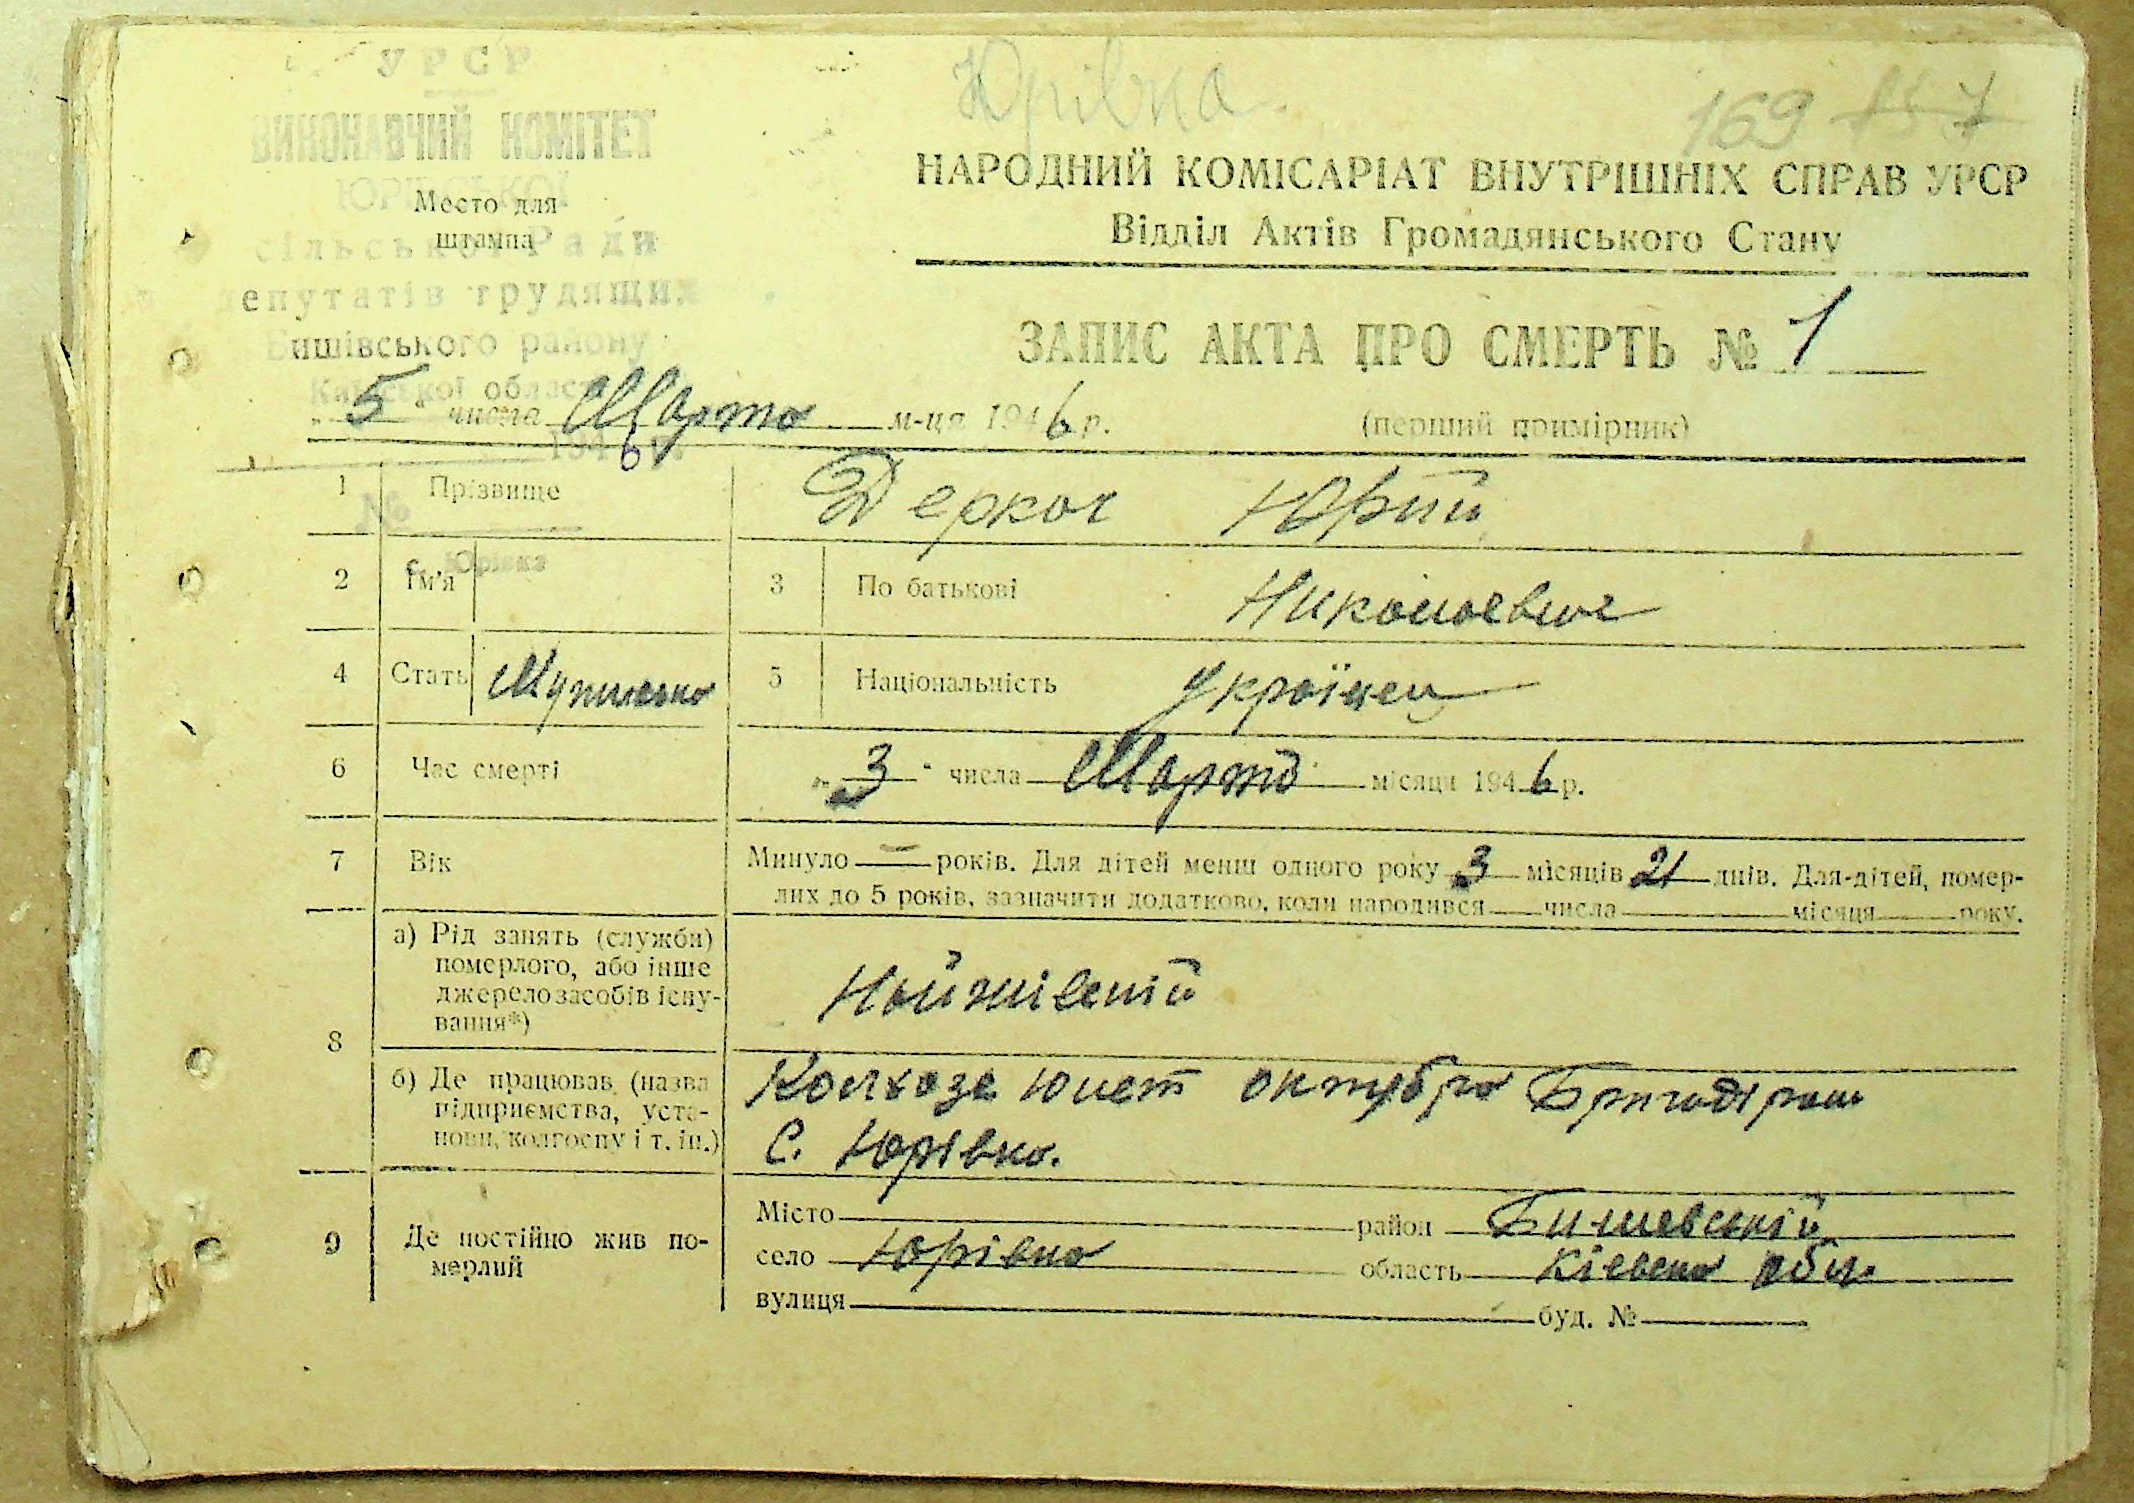 Юрівка
169
УРСР
ВИКОНАВЧИЙ КОМІТЕТ
Место для
штампа
сільської Ради
депутатів трудящих
Бишівського району
Київської області
194 6 р.
№
с. Юрівка
НАРОДНИЙ КОМІСАРІАТ ВНУТРІШНІХ СПРАВ УРСР
Відділ Актів Громадянського Стану
ЗАПИС АКТА ПРО СМЕРТЬ № 1
„ 5 " числа Марта м-ця 1946 р.
(перший примірник)
1 Прізвище Деркач Юрий
2 Ім'я 3 По батькові Николаевич
4 Стать 5 Національність Українец
6 Час смерті „ 3 " числа Марта місяця 1946 р.
7 Вік Минуло — років. Для дітей менш одного року 3 місяців 21 днів. Для дітей, помер-
лих до 5 років, зазначити додатково, коли народився числа місяця року.
8 а) Рід занять (служби)
померлого, або інше
джерело засобів існу-
вання*)
б) Де працював (назва
підприємства, уста-
нови, колгоспу і т. ін.)
Колхозе октября
С. Юрівка.
9 Де постійно жив по-
мерлий
Місто район Бишевський
село Юрівка область обл.
вулиця буд. №